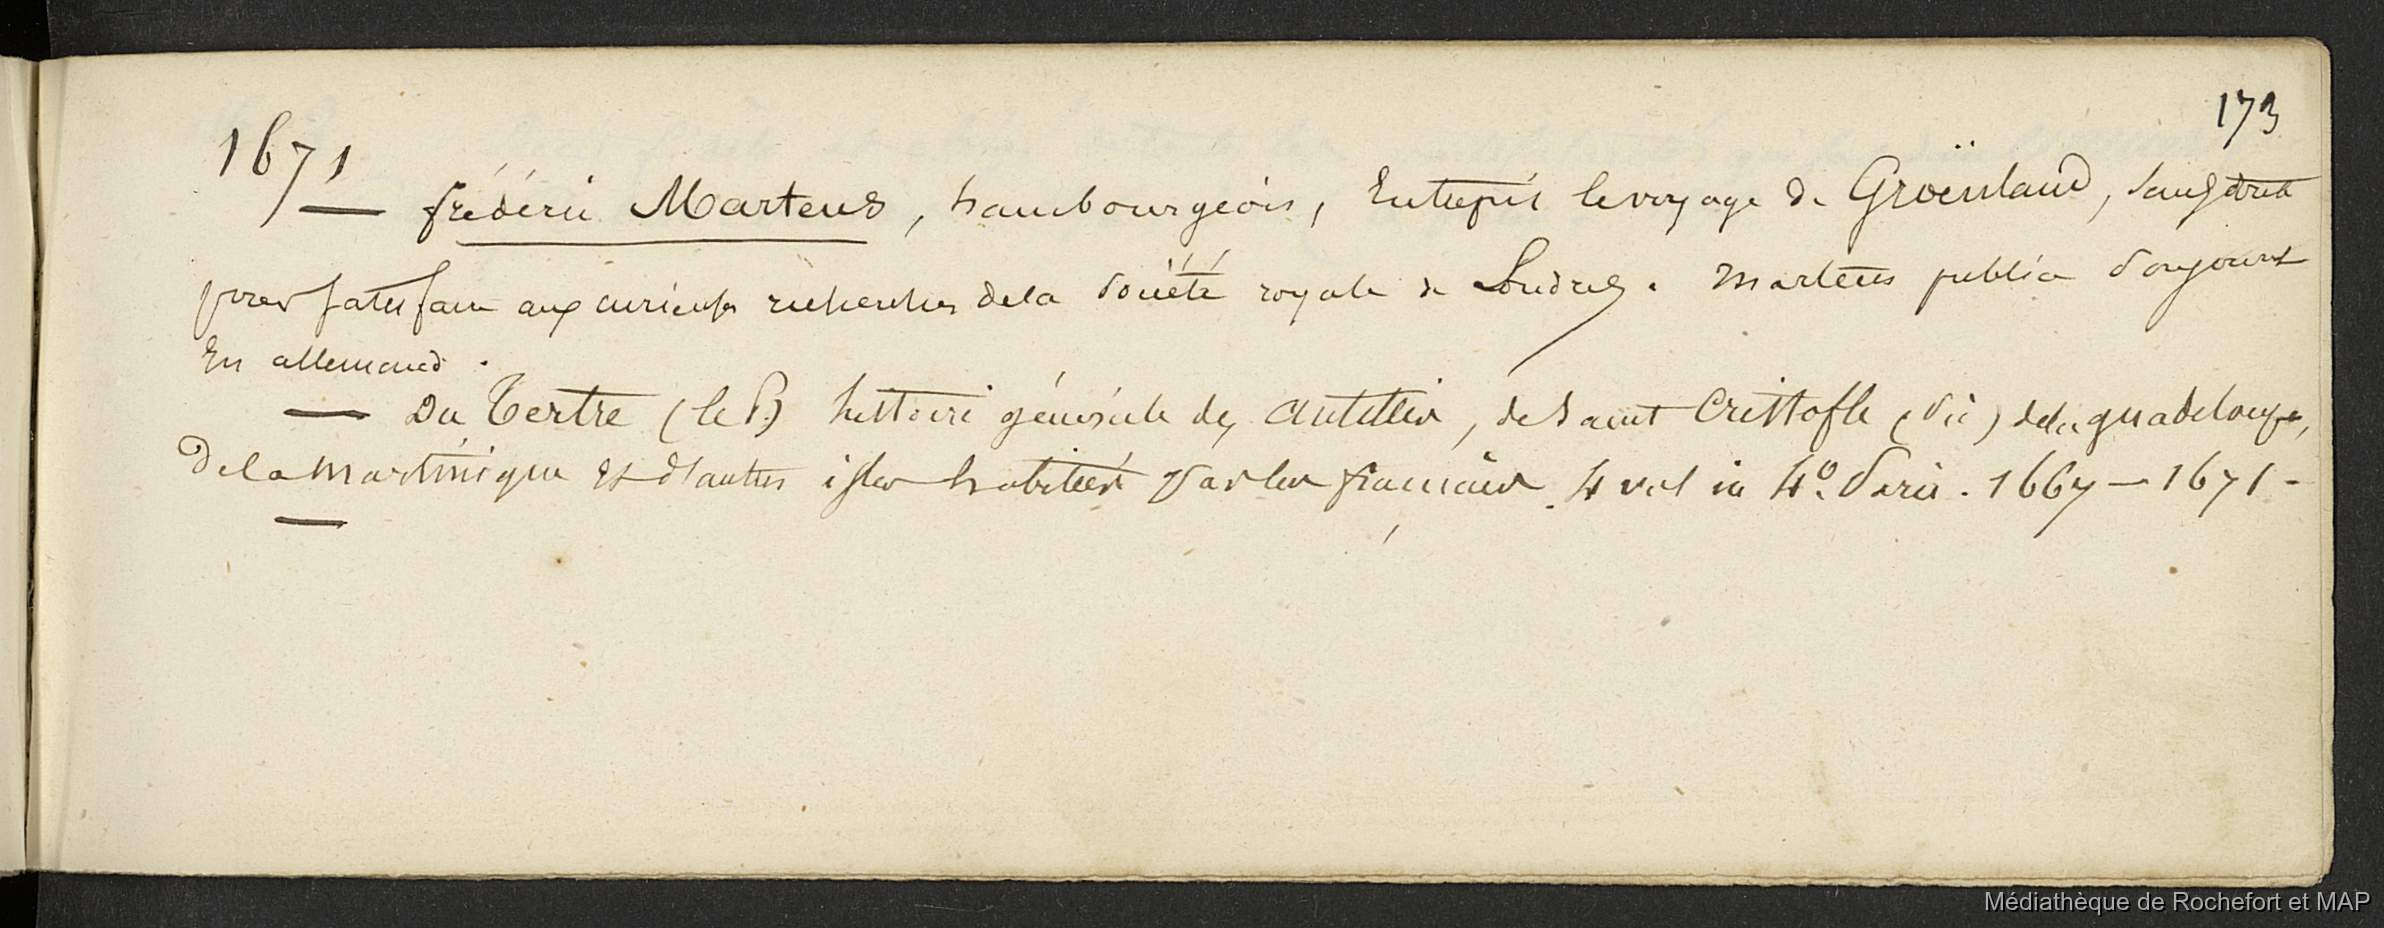 173
1671
— frédéric Martens, hambourgeois, Entreprit le voyage de Groënland, sans doute
pour satisfaire aux curieuses recherches de la Société royale de Londres. Martens publia son journal
En allemand.
— Du Tertre (le P.) histoire générale des antilles, de Saint Cristofle (sic) de la guadeloupe,
de la martinique et d'autres isles habitées par les français. 4 vol in 4º. Paris. 1667 — 1671 -
—
Médiathèque de Rochefort et MAP